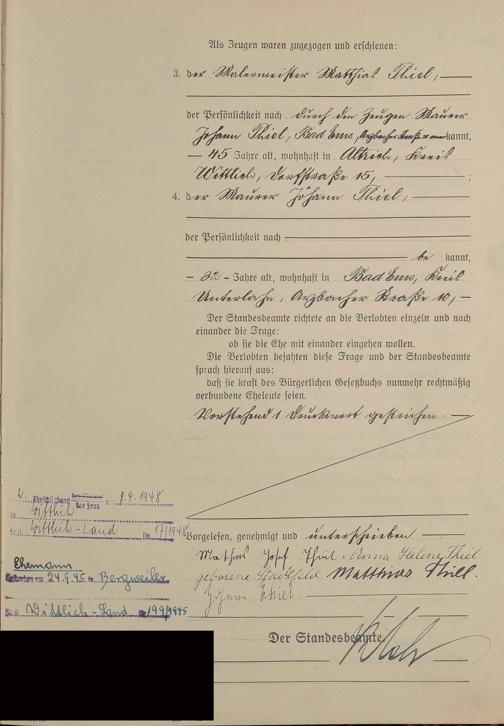 Als Zeugen waren zugezogen und erschienen:
3. der Malermeister Matthias Thiel,
der Persönlichkeit nach durch den Zeugen Maurer
Johann Thiel, Bad Ems, Arzbacher Straße kannt,
45 Jahre alt, wohnhaft in Altrich, Kreis
Wittlich, Dorfstraße 15, ;
4. der Maurer Johann Thiel,
der Persönlichkeit nach
be kannt,
32 Jahre alt, wohnhaft in Bad Ems, Kreis
Unterlahn, Arzbacher Straße 10,
Der Standesbeamte richtete an die Verlobten einzeln und nach
einander die Frage:
ob sie die Ehe mit einander eingehen wollen.
Die Verlobten bejahten diese Frage und der Standesbeamte
sprach hierauf aus:
daß sie kraft des Bürgerlichen Gesetzbuchs nunmehr rechtmäßig
verbundene Eheleute seien.
Vorstehend 1 Druckwort gestrichen.
2. Eheschließung der Frau 9.4.1948
in Wittlich
St.A. Wittlich-Land Nr. 17/1948
Vorgelesen, genehmigt und unterschrieben
Mathias Josef Thiel. Anna Helene Thiel
geborene Matthias Thiel.
Johann Thiel.
Ehemann
24.9.45 in Bergweiler
St.A. Wittlich-Land 199/1945
Der Standesbeamte.